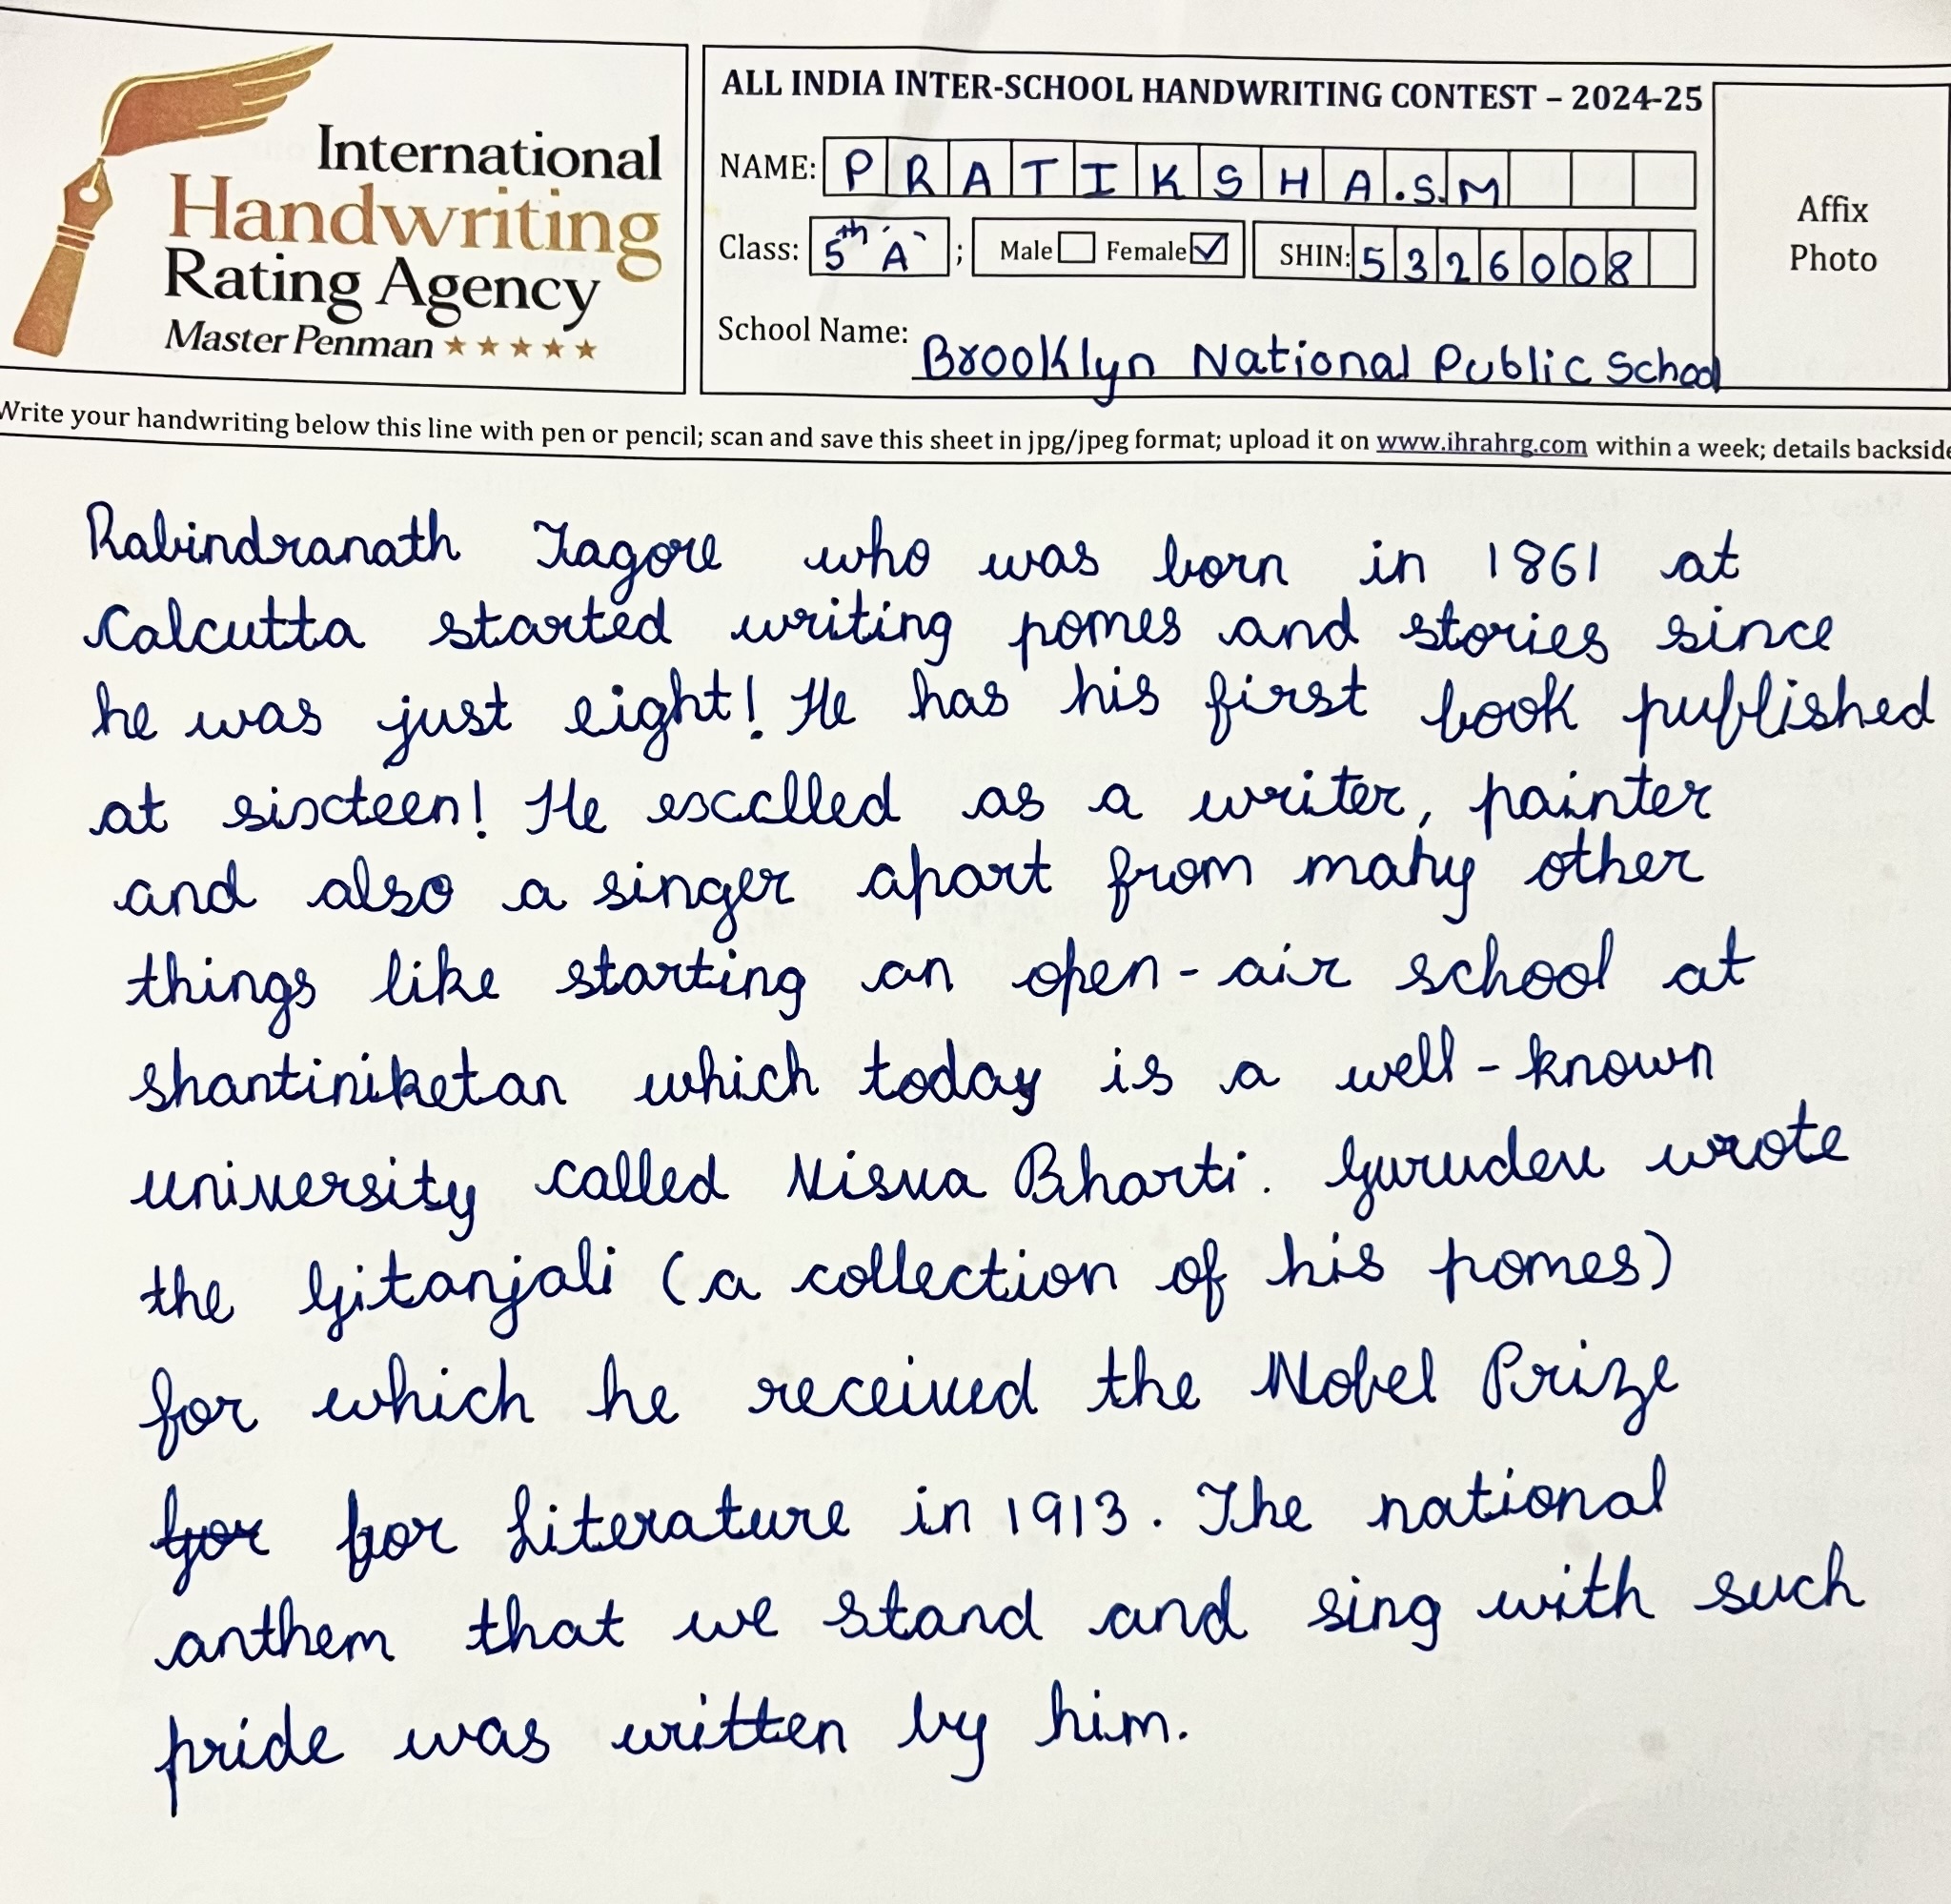 International
Handwriting
Rating Agency
Master Penman ★★★★★
ALL INDIA INTER-SCHOOL HANDWRITING CONTEST – 2024-25
NAME: PRATIKSHA.S.M
Class: 5th 'A' ; Male Female ✓ SHIN: 5326008
School Name: Brooklyn National Public School
Affix
Photo
Write your handwriting below this line with pen or pencil; scan and save this sheet in jpg/jpeg format; upload it on www.ihrahrg.com within a week; details backside
Rabindranath Tagore who was born in 1861 at
Calcutta started writing pomes and stories since
he was just eight! He has his first book puflished
at sixteen! He excelled as a writer, painter
and also a singer apart from many other
things like starting an open-air school at
shantiniketan which today is a well-known
university called Visva Bharti. Gurudev wrote
the Gitanjali (a collection of his pomes)
for which he received the Nobel Prize
for for Literature in 1913. The national
anthem that we stand and sing with such
pride was written by him.